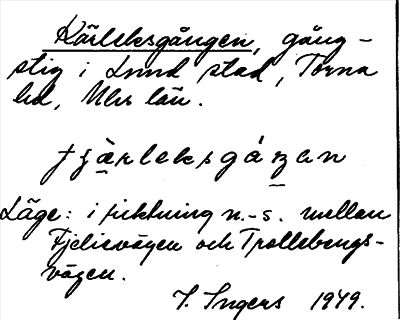 Kärleksgången, gång-
stig i Lund stad, Torna
hd, Mlhs län.
fjä̱rleksgáṉan
Läge: i riktning n.-s. mellan
Fjelievägen och Trollebergs-
vägen.
I. Ingers 1949.